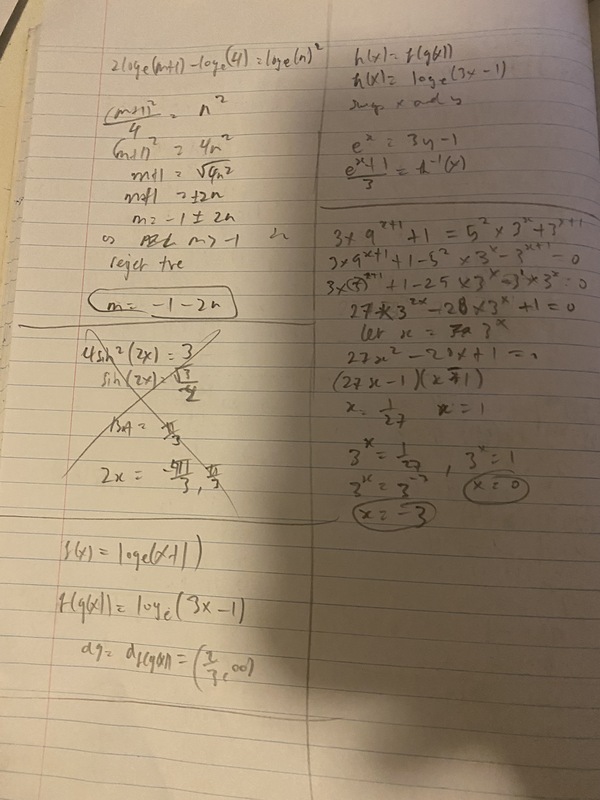 2loge(m+1) - loge(4) = loge(n)²
(m+1)²/4 = n²
(m+1)² = 4n²
m+1 = √4n²
m+1 = ±2n
m = -1 ± 2n
m > -1
reject +ve
m = -1 - 2n
4sin²(2x) = 3
sin(2x) = √3/4
BA = π/3
2x = -4π/3, π/3
f(x) = loge(x+1)
f(g(x)) = loge(3x-1)
dg = df(g(x)) = (1/3, ∞)
h(x) = f(g(x))
h(x) = loge(3x-1)
swap x and y
eˣ = 3y-1
eˣ+1/3 = h⁻¹(x)
3×9ˣ⁺¹ + 1 = 5² × 3ˣ + 3ˣ⁺¹
3×9ˣ⁺¹ + 1 - 5² × 3ˣ - 3ˣ⁺¹ = 0
+ 1 - 25 × 3ˣ - 3¹ × 3ˣ = 0
27 × 3²ˣ - 28 × 3ˣ + 1 = 0
let x = 3ˣ
27x² - 28x + 1 = 0
(27x-1)(x-1)
x = 1/27 x = 1
3ˣ = 1/27, 3ˣ = 1
3ˣ = 3⁻³ x = 0
x = -3